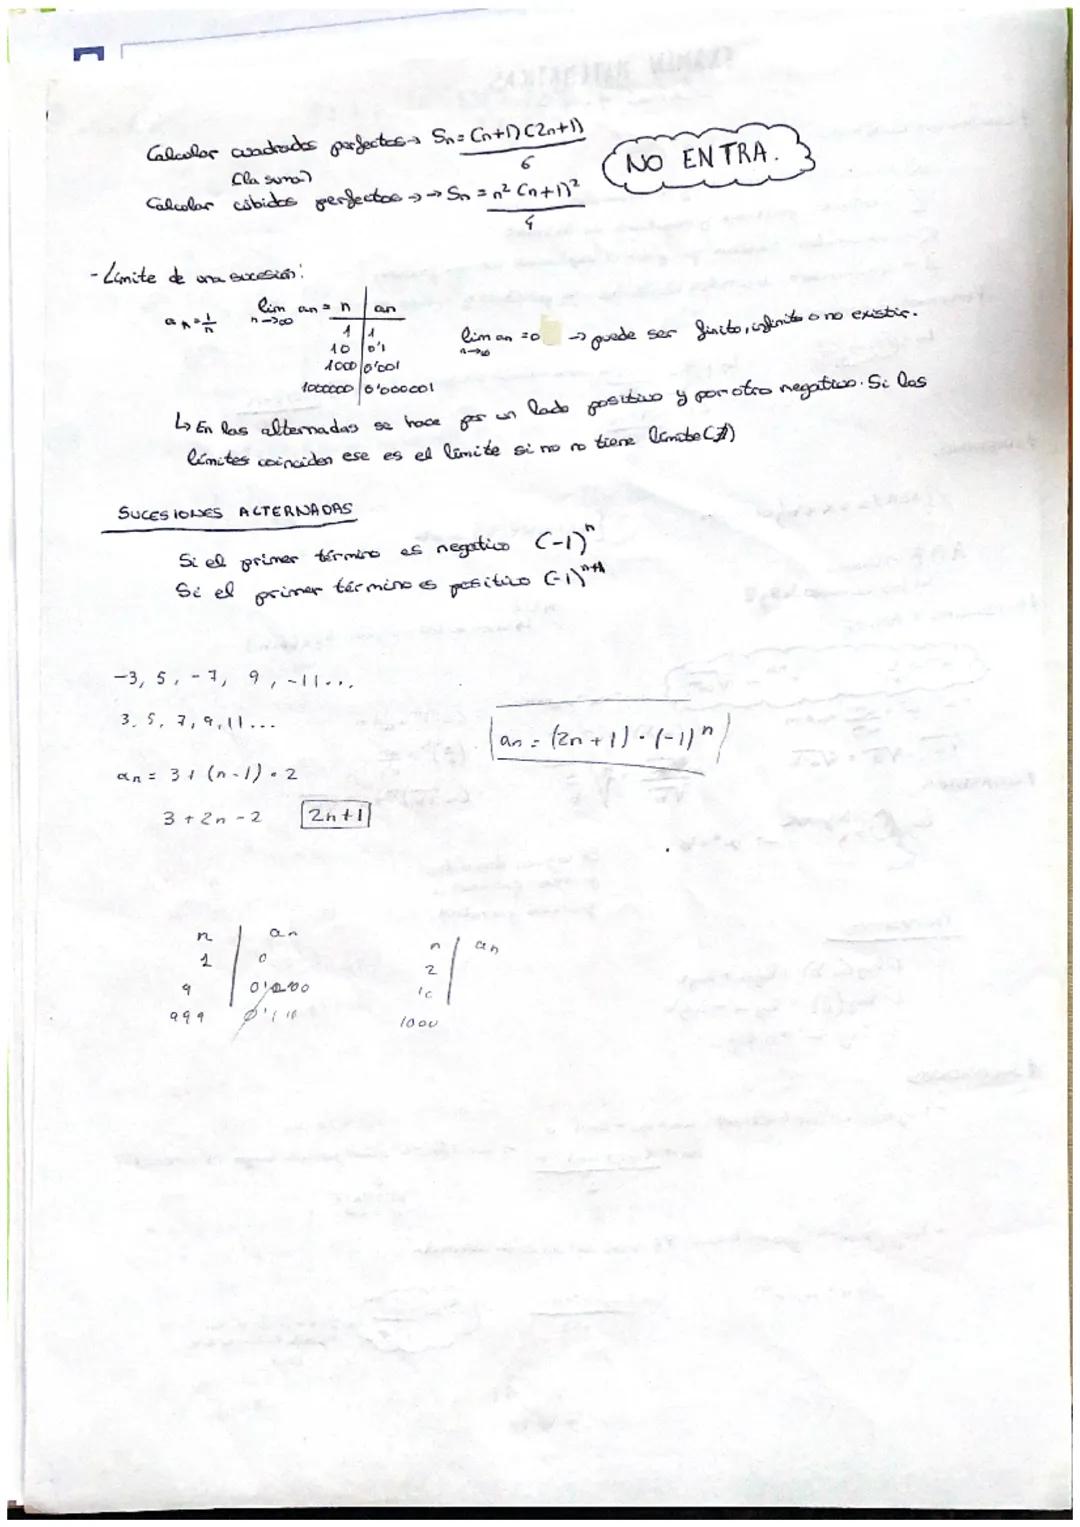 Calcular cuadrados perfectos → Sn = (n+1)(2n+1)
6
(la suma)
NO ENTRA.
Calcular cúbicos perfectos → → Sn = n² (n+1)²
4
- Límite de una sucesión:
an = 1/n lim n→∞ an = n | an
1 | 1
10 | 0'1
1000 | 0'001
1000000 | 0'000001
lim n→∞ an = 0 → puede ser finito, infinito o no existir.
↳ En las alternadas se hace por un lado positivo y por otro negativo. Si los
límites coinciden ese es el límite si no no tiene límite (∄)
SUCESIONES ALTERNADAS
Si el primer término es negativo (-1)ⁿ
Si el primer término es positivo (-1)ⁿ⁺¹
-3, 5, -7, 9, -11...
3, 5, 7, 9, 11...
an = (2n+1)·(-1)ⁿ
an = 3+(n-1)·2
3+2n-2 2n+1
n | an
1 | 0
9
999
n | an
2
10
1000